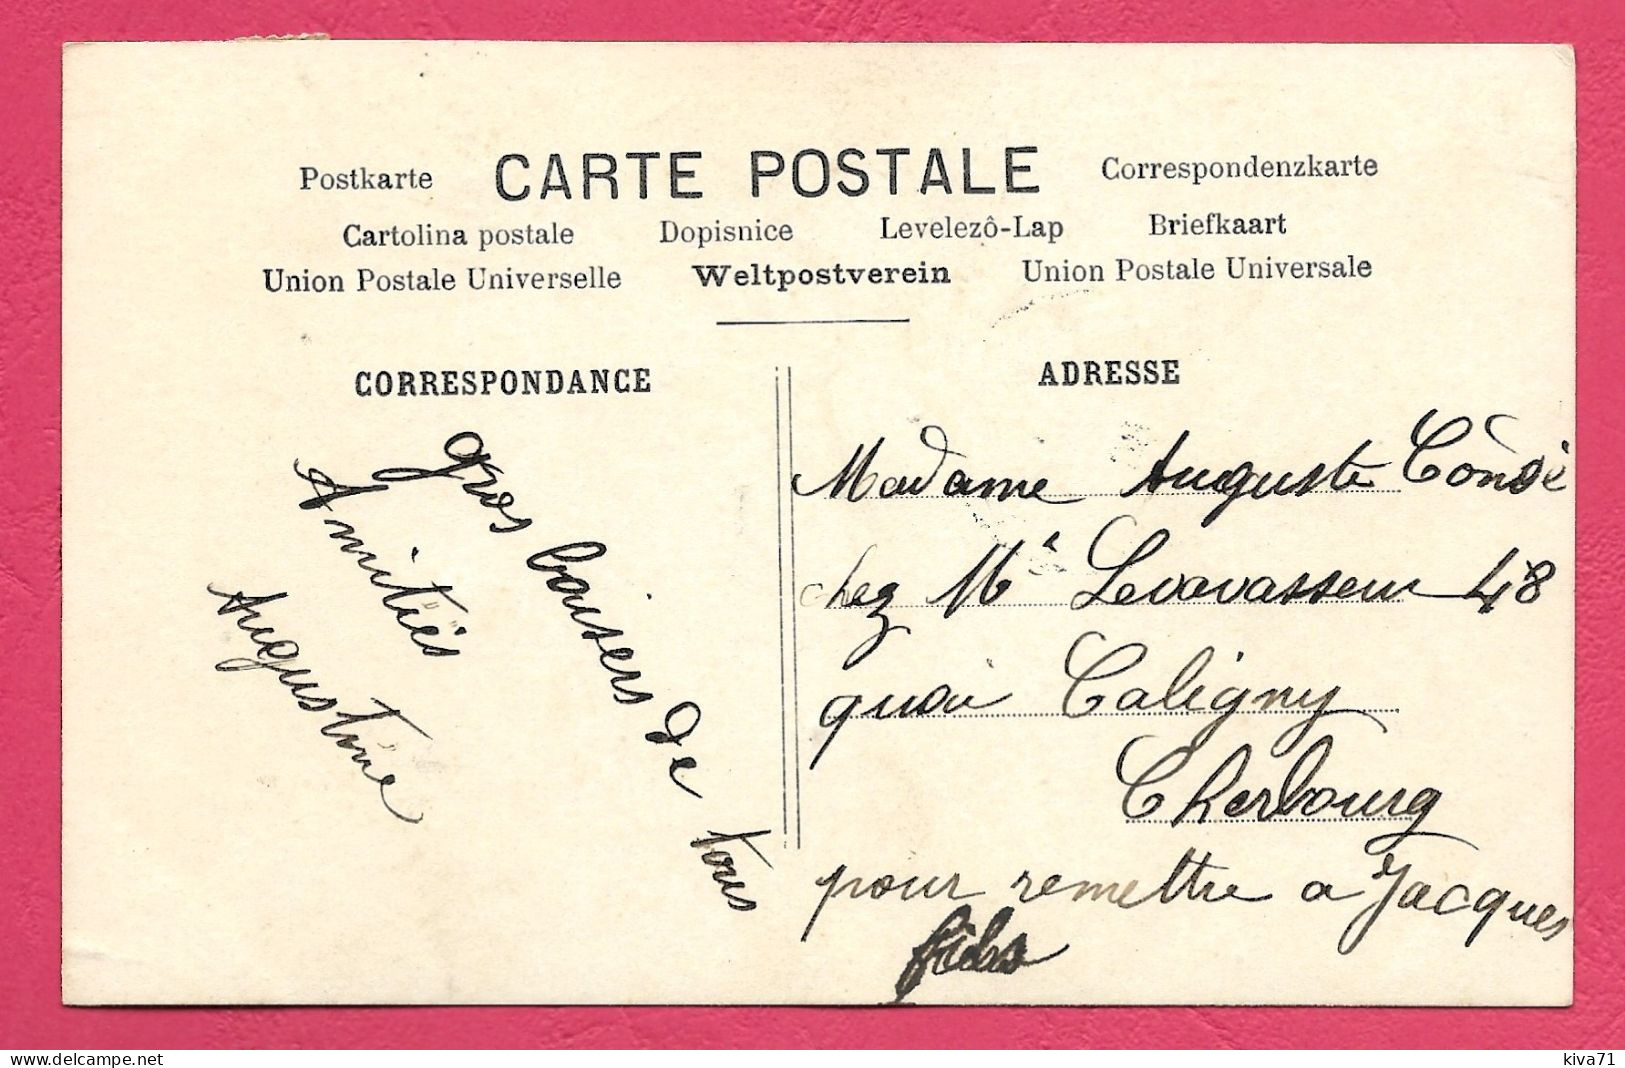 Postkarte CARTE POSTALE Correspondenzkarte
Cartolina postale Dopisnice Levelezô-Lap Briefkaart
Union Postale Universelle Weltpostverein Union Postale Universale
CORRESPONDANCE
gros baisers de tous
Amitiés
Augustine
ADRESSE
Madame Auguste Condé
chez Mr Levavasseur 48
quai Caligny
Cherbourg
pour remettre a Jacques
fils
www.delcampe.net
kiva71